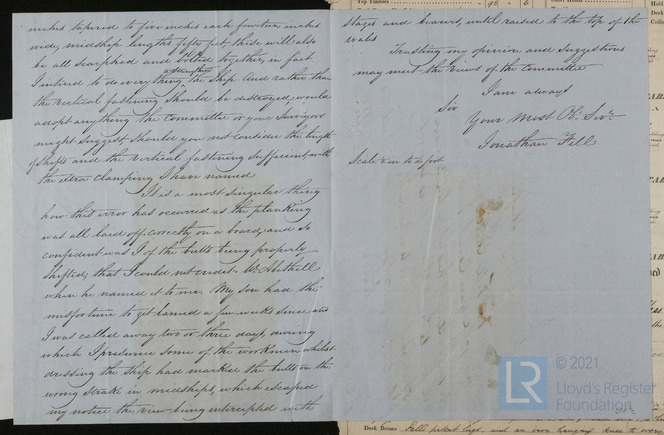 inches tapered to five inches each fourteen inches
wide, midship lengths fifty feet, these will also
be all scarphed and bolted together, in fact
I intend to do everything to strengthen the Ship And rather than
the vertical fastening should be destroyed, would
adopt anything the Committee or your Surveyors
might Suggest, Should you not consider the length
of Shifts and the vertical fastening Sufficient, with
the extra Clamping I have named
It is a most singular thing
how this error has occurred as the planking
was all laid off correctly on a board, and so
confident was I of the butts being properly
shifted, that I could not credit Mr
when he named it to me. My son had the
misfortune to get lamed a few weeks since and
I was called away two or three days, during
which I presume some of the workmen whilst
dressing the Ship had marked the butts on the
wrong Strake in midships, which escaped
my notice the view being intercepted with
stages and braces, until raised to the top of the
wales
Trusting my opinion and Suggestions
may meet the views of the Committee
I am always
Sir
Your Most Ob. Serv
Jonathan Fell
Scale in to a foot
© 2021
LR
Lloyd's Register
Foundation
Top Timbers
Desk Beams